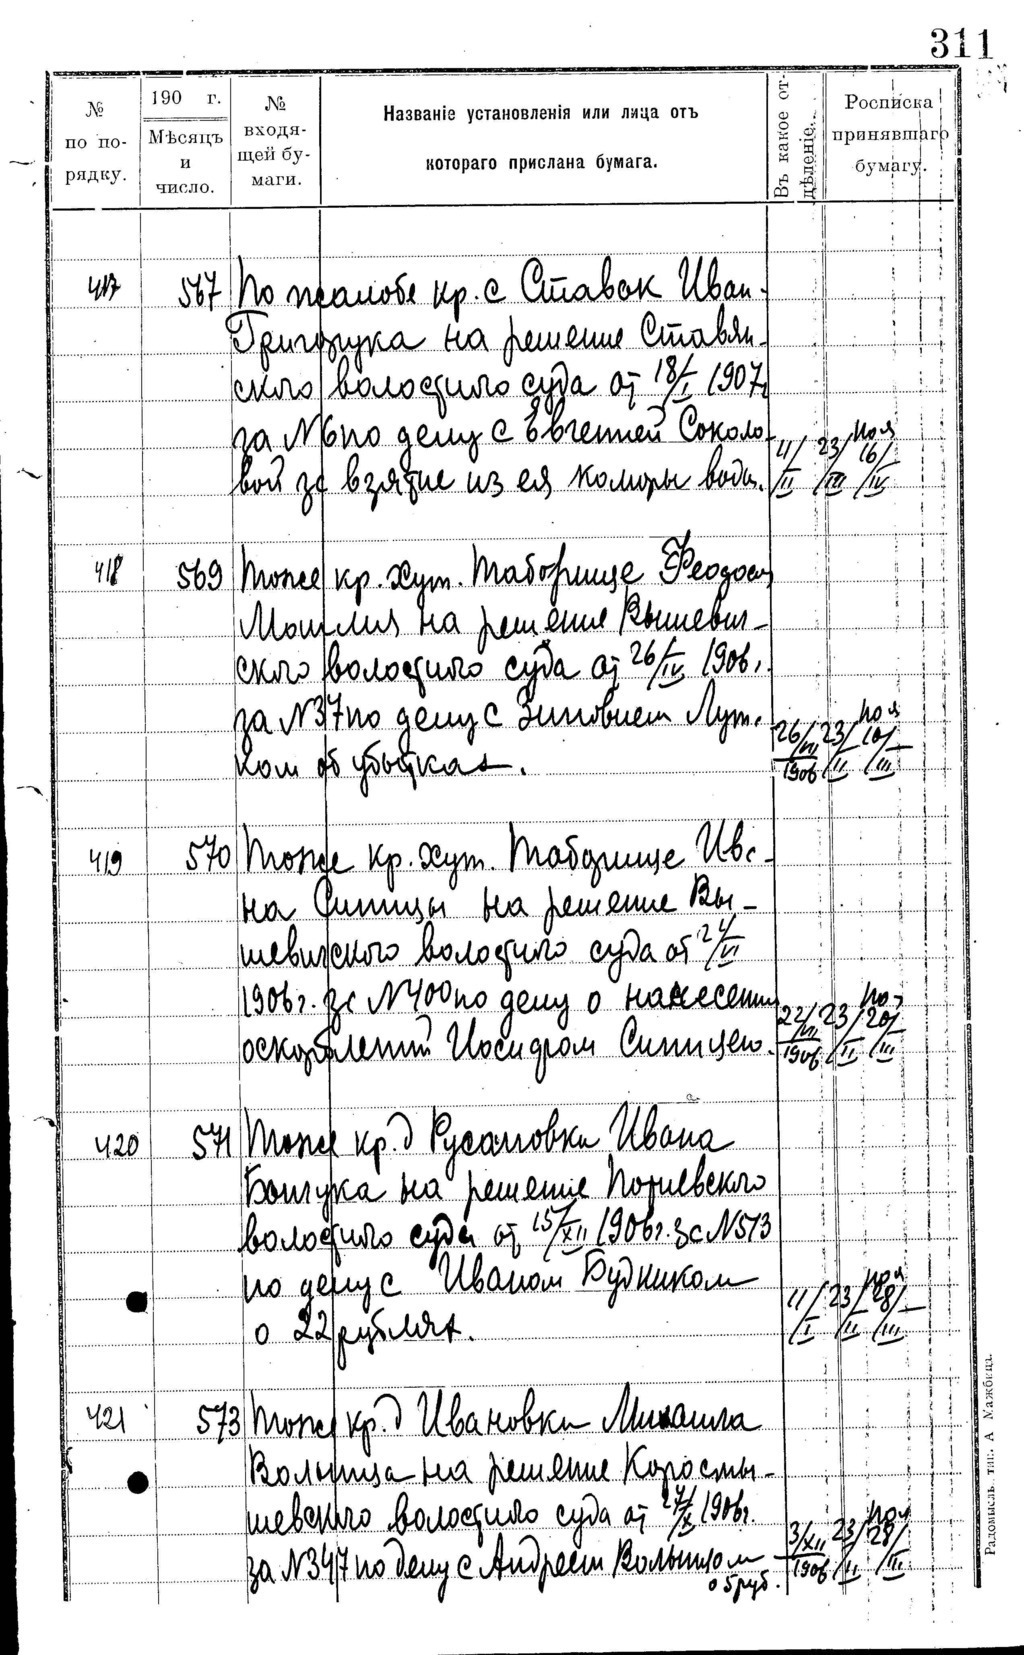 311
№ по порядку.
190 г.
Мѣсяцъ и число.
№ входящей бумаги.
Названіе установленія или лица отъ котораго прислана бумага.
Въ какое отдѣленіе.
Росписка принявшаго бумагу.
417 567 По жалобе кр. с Ставок Иван
Григорука на решение Ставян-
ского волостного суда от 18/I 1907г
за N6 по делу с Евгенией Соколо-
вой за взятие из ея коморы воды. 11/II 23/III 16/IV
418 569 Тоже кр. хут. Таборище Феодосия
на решение Вышевич-
ского волостного суда от 26/IV 1906г.
за N37 по делу с Зиновием
ком об убытках. 26/VII 1906 23/II 10/III
419 570 Тоже кр. хут. Таборище Ива-
на Синицы на решение Вы-
шевичского волостного суда от 24/VI
1906г. за N400 по делу о нанесении
оскорблений Иосифом Синицею. 22/VII 1906 23/II 20/III
420 571 Тоже кр. д Русановки Ивана
на решение Потиевского
волостного суда от 15/XII 1906г. за N513
по делу с Иваном Будником
о 22 рублях. 11/I 23/II 28/III
421 573 Тоже кр. д Ивановки Михаила
Волынца на решение Коросты-
шевского волостного суда от 27/X 1906г.
за N347 по делу с Андреем Волынцом
о 5 руб. 3/XII 1906 23/II 28/III
Радомысль, тип. А Мажбица.